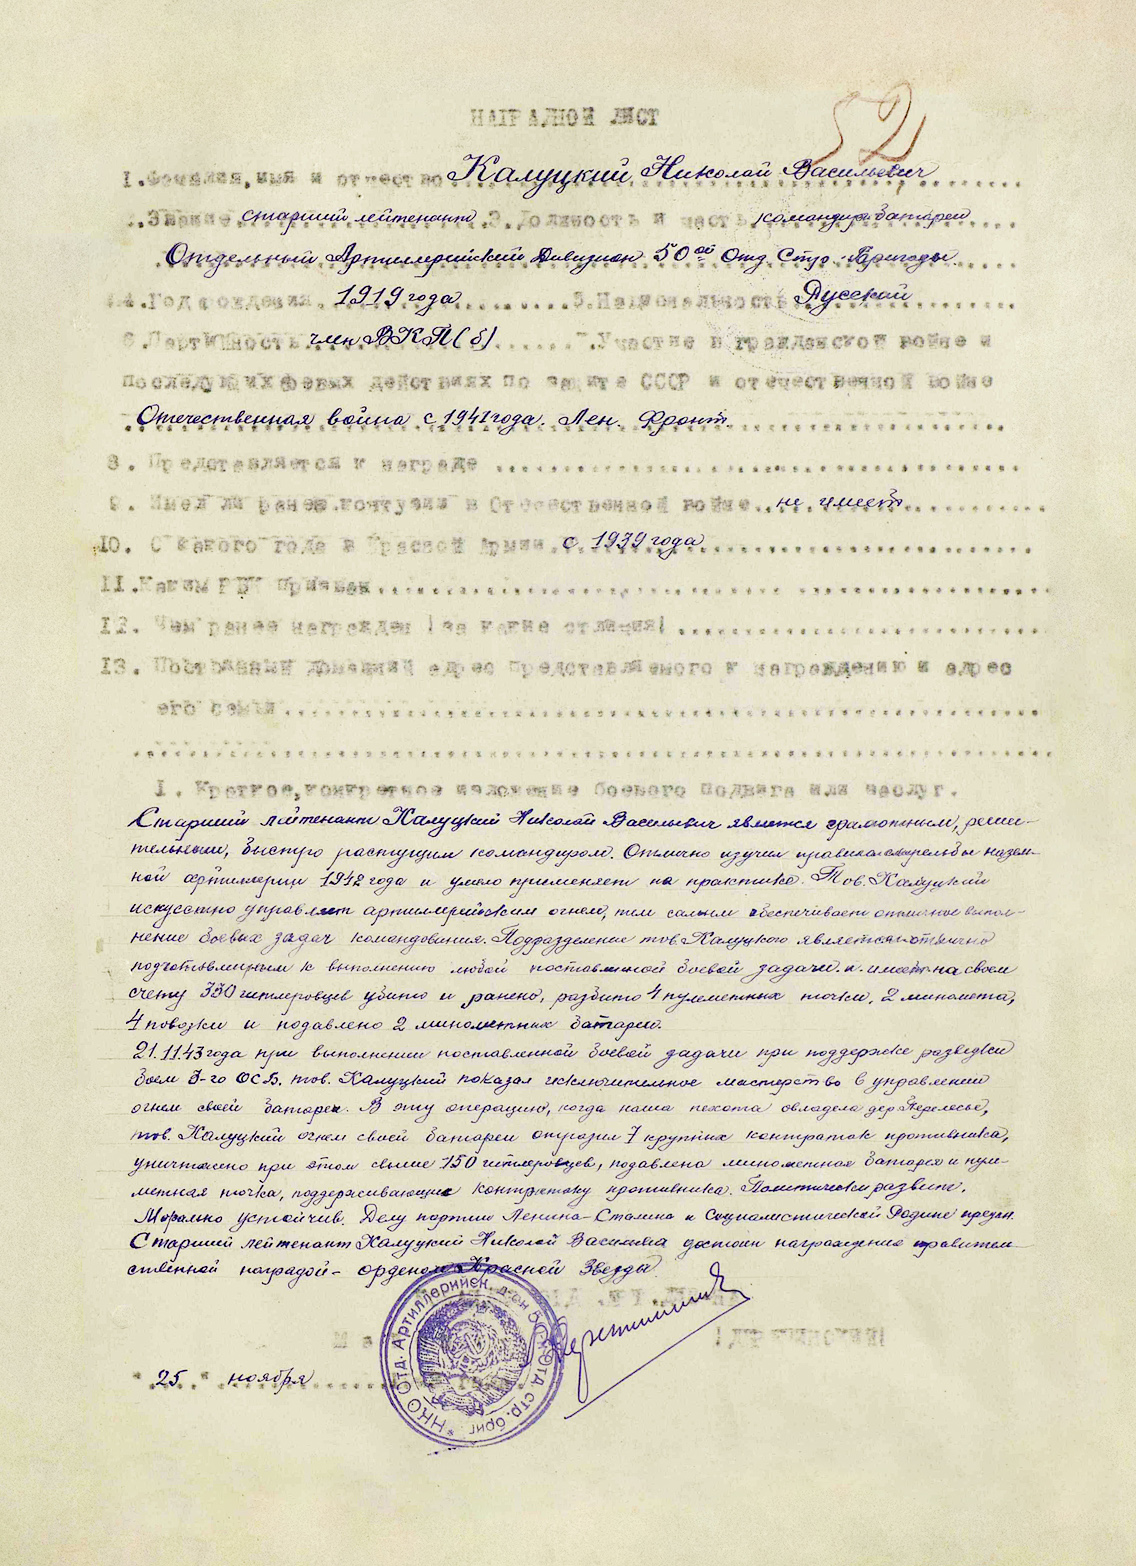 НАГРАДНОЙ ЛИСТ
52
1. Фамилия, имя и отчество Калуцкий Николай Васильевич
2. Звание старший лейтенант 3. Должность и часть командир батареи
Отдельный Артиллерийский Дивизион 50ой Отд. Стр. Бригады
4. Год рождения 1919 года 5. Национальность Русский
6. Партийность член ВКП(б) 7. Участие в гражданской войне и
последующих боевых действиях по защите СССР и отечественной войне
Отечественная война с 1941 года. Лен. Фронт
8. Представляется к награде
9. Имел ли ранен. контузии в Отечественной войне не имеет
10. С какого года в Красной Армии с 1939 года
11. Каким РВК призван
12. Чем ранее награжден /за какие отличия/
13. Постоянный домашний адрес представляемого к награждению и адрес
его семьи
1. Краткое, конкретное изложение боевого подвига или заслуг.
Старший лейтенант Калуцкий Николай Васильевич является грамотным, реши-
тельным, быстро растущим командиром. Отлично изучил правила стрельбы назем-
ной артиллерии 1942 года и умело применяет на практике. Тов. Калуцкий
искусстно управляет артиллерийским огнем, тем самым обеспечивает отличное выпол-
нение боевых задач командования. Подразделение тов. Калуцкого является отлично
подготовленным к выполнению любой поставленной боевой задачи и имеет на своем
счету 350 гитлеровцев убито и ранено, разбито 4 пулеметных точки, 2 миномета,
4 повозки и подавлено 2 минометных батареи.
21.11.43 года при выполнении поставленной боевой задачи при поддержке разведки
боем ОСБ. тов. Калуцкий показал исключительное мастерство в управлении
огнем своей батареи. В эту операцию, когда наша пехота овладела дер. Перелесье,
тов. Калуцкий огнем своей батареи отразил 7 крупных контратак противника,
уничтожено при этом свыше 150 гитлеровцев, подавлена минометная батарея и пуле-
метная точка, поддерживающие контратаку противника. Политически развит.
Морально устойчив. Делу партии Ленина-Сталина и Социалистической Родине предан.
Старший лейтенант Калуцкий Николай достоин награждения правитель-
ственной наградой - орденом Красной Звезды.
"25" ноября
* НКО Отд. Артиллерийск. д-он 50 Отд. стр. бриг.